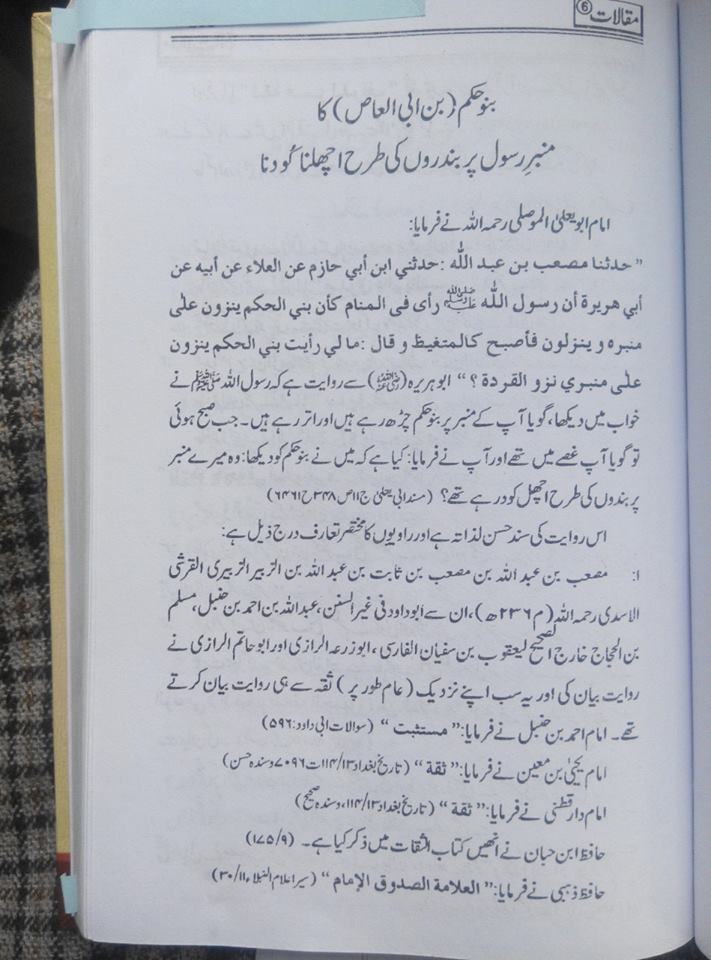 مقالات ⑥
بنو حکم (بن ابی العاص) کا
منبرِ رسول پر بندروں کی طرح اچھلنا کودنا
امام ابو یعلیٰ الموصلی رحمہ اللہ نے فرمایا:
"حدثنا مصعب بن عبد الله : حدثني ابن أبي حازم عن العلاء عن أبيه عن
أبي هريرة أن رسول الله ﷺ رأى في المنام كأن بني الحكم ينزون على
منبره و ينزلون فأصبح كالمتغيظ و قال : ما لي رأيت بني الحكم ينزون
على منبري نزو القردة ؟" ابو ہریرہ (رضی اللہ عنہ) سے روایت ہے کہ رسول اللہ ﷺ نے
خواب میں دیکھا، گویا آپ کے منبر پر بنو حکم چڑھ رہے ہیں اور اتر رہے ہیں۔ جب صبح ہوئی
تو گویا آپ غصے میں تھے اور آپ نے فرمایا: کیا ہے کہ میں نے بنو حکم کو دیکھا: وہ میرے منبر
پر بندوں کی طرح اچھل کود رہے تھے؟ (مسند ابی یعلیٰ ج۱۱ص۳۴۸ح۶۴۶۱)
اس روایت کی سند حسن لذاتہ ہے اور راویوں کا مختصر تعارف درج ذیل ہے:
۱: مصعب بن عبد اللہ بن مصعب بن ثابت بن عبد اللہ بن الزبیر الزبیری القرشی
الاسدی رحمہ اللہ (م ۲۳۶ھ)، ان سے ابو داود فی غیر السنن، عبد اللہ بن احمد بن حنبل، مسلم
بن الحجاج خارج الصحیح، یعقوب بن سفیان الفارسی، ابو زرعہ الرازی اور ابو حاتم الرازی نے
روایت بیان کی اور یہ سب اپنے نزدیک (عام طور پر) ثقہ سے ہی روایت بیان کرتے
تھے۔ امام احمد بن حنبل نے فرمایا: "مستثبت" (سوالات ابی داود: ۵۹۶)
امام یحییٰ بن معین نے فرمایا: "ثقة" (تاریخ بغداد ۱۱۴/۱۳ت ۷۰۹۶ وسندہ حسن)
امام دارقطنی نے فرمایا: "ثقة" (تاریخ بغداد ۱۱۴/۱۳، وسندہ صحیح)
حافظ ابن حبان نے انھیں کتاب الثقات میں ذکر کیا ہے۔ (۱۷۵/۹)
حافظ ذہبی نے فرمایا: "العلامة الصدوق الإمام" (سیر اعلام النبلاء ۳۰/۱۱)